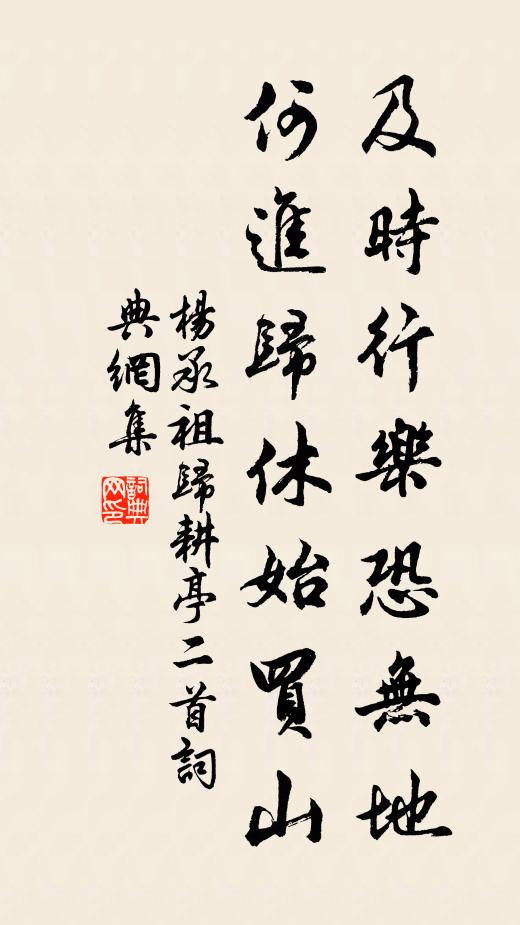 及時行樂恐無地
何進歸休始買山
楊承祖歸耕亭二首詞
典網集
詞典網印